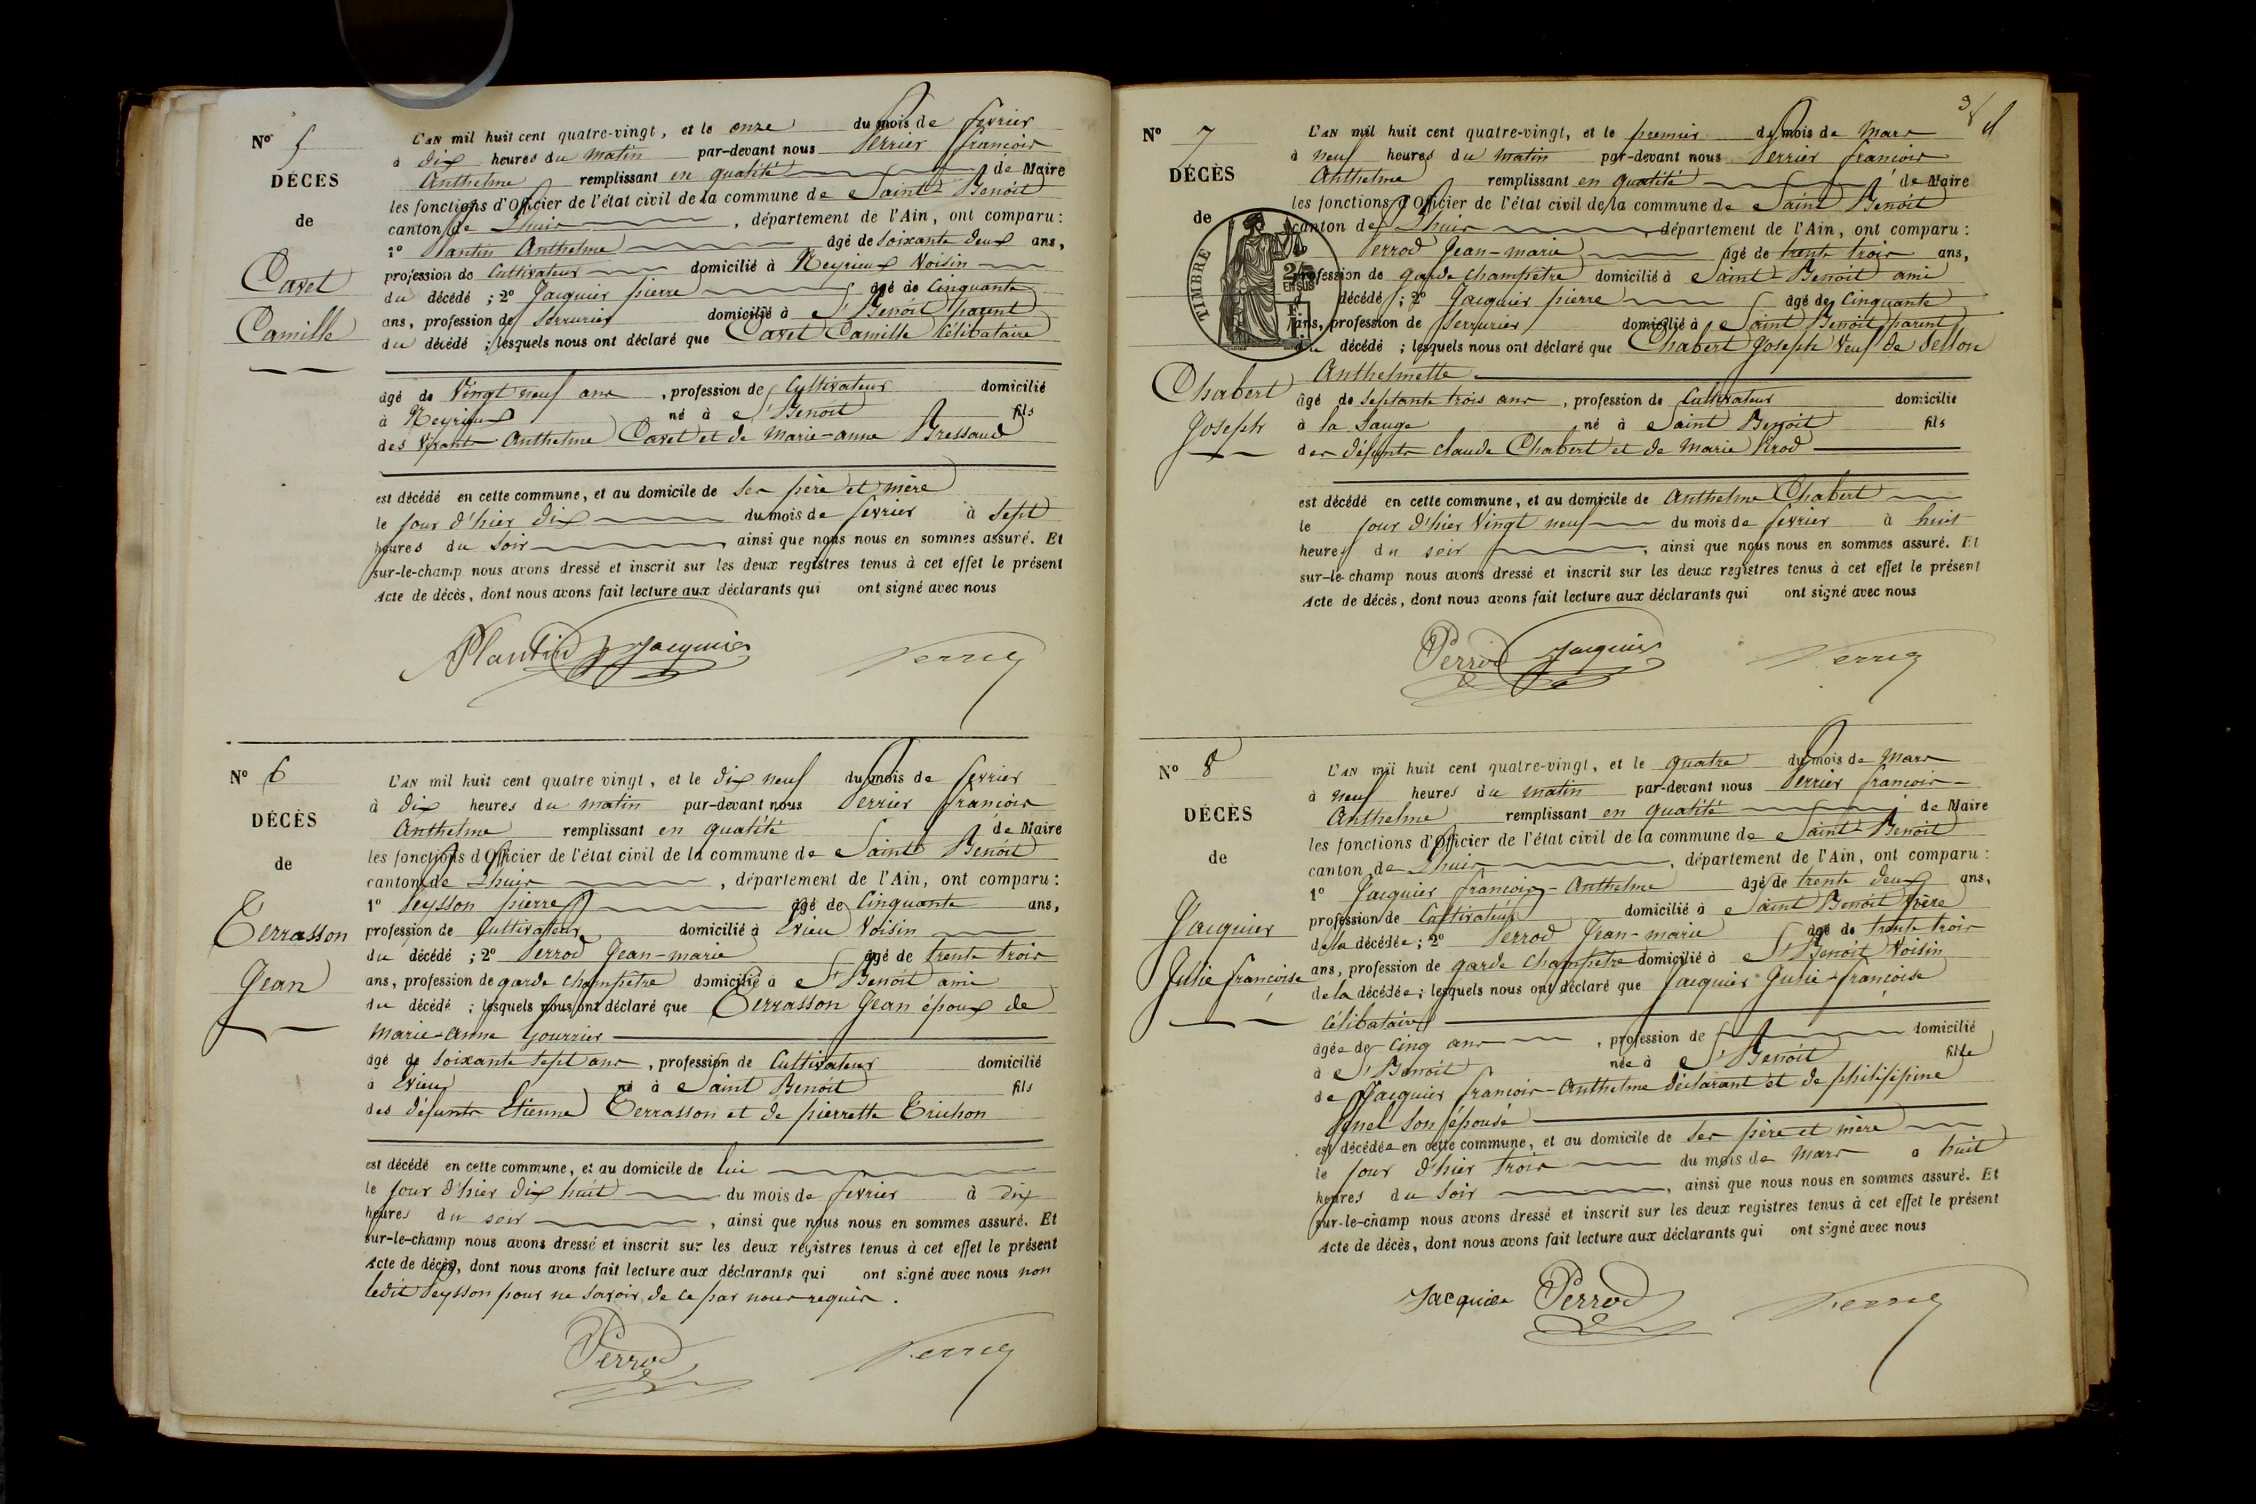 N° 5
DÉCÈS
de
Cavet
Camille
L'AN mil huit cent quatre-vingt, et le onze du mois de fevrier
à dix heures du matin par-devant nous Perrier francois
Anthelme remplissant en qualité de Maire
les fonctions d'Officier de l'état civil de la commune de Saint Benoit
canton de Lhuis, département de l'Ain, ont comparu :
1° Plantin Anthelme âgé de soixante deux ans,
profession de Cultivateur domicilié à Neyrieux Voisin
du décédé ; 2° Jacquier pierre âgé de Cinquante
ans, profession de serrurier domicilié à St Benoit parent
du décédé ; lesquels nous ont déclaré que Cavet Camille Célibataire
âgé de Vingt neuf ans, profession de Cultivateur domicilié
à Neyrieux né à St Benoit fils
des vivants Anthelme Cavet et de Marie-anne Bressaud
est décédé en cette commune, et au domicile de ses père et mère
le jour d'hier dix du mois de fevrier à sept
heures du soir, ainsi que nous nous en sommes assuré. Et
sur-le-champ nous avons dressé et inscrit sur les deux registres tenus à cet effet le présent
Acte de décès, dont nous avons fait lecture aux déclarants qui ont signé avec nous
Plantin Jacquier Perrier
N° 6
DÉCÈS
de
Terrasson
Jean
L'AN mil huit cent quatre vingt, et le dix neuf du mois de fevrier
à dix heures du matin par-devant nous Perrier francois
Anthelme remplissant en qualité de Maire
les fonctions d'Officier de l'état civil de la commune de Saint Benoit
canton de Lhuis, département de l'Ain, ont comparu :
1° Peysson pierre âgé de Cinquante ans,
profession de Cultivateur domicilié à Evieu Voisin
du décédé ; 2° Perrod Jean-marie âgé de trente trois
ans, profession de garde champêtre domicilié à St Benoit ami
du décédé ; lesquels nous ont déclaré que Terrasson Jean époux de
Marie-Anne Gourrier
âgé de soixante sept ans, profession de Cultivateur domicilié
à Evieu né à Saint Benoit fils
des défunts Etienne Terrasson et de pierrette Trichon
est décédé en cette commune, et au domicile de lui
le jour d'hier dix huit du mois de fevrier à dix
heures du soir, ainsi que nous nous en sommes assuré. Et
sur-le-champ nous avons dressé et inscrit sur les deux registres tenus à cet effet le présent
Acte de décès, dont nous avons fait lecture aux déclarants qui ont signé avec nous non
ledit Peysson pour ne savoir de ce par nous requis.
Perrod Perrier
3
N° 7
DÉCÈS
de
TIMBRE
Chabert
Joseph
L'AN mil huit cent quatre-vingt, et le premier du mois de Mars
à neuf heures du matin par-devant nous Perrier francois
Anthelme remplissant en qualité de Maire
les fonctions d'Officier de l'état civil de la commune de Saint Benoit
canton de Lhuis, département de l'Ain, ont comparu :
Perrod Jean-marie âgé de trente trois ans,
profession de garde champêtre domicilié à Saint Benoit ami
décédé ; 2° Jacquier pierre âgé de Cinquante
ans, profession de serrurier domicilié à Saint Benoit parent
du décédé ; lesquels nous ont déclaré que Chabert Joseph Veuf de
Anthelmette
âgé de septante trois ans, profession de Cultivateur domicilié
à la Sauge né à Saint Benoit fils
des défunts claude Chabert et de Marie Pirod
est décédé en cette commune, et au domicile de Anthelme Chabert
le jour d'hier Vingt neuf du mois de fevrier à huit
heures du soir, ainsi que nous nous en sommes assuré. Et
sur-le-champ nous avons dressé et inscrit sur les deux registres tenus à cet effet le présent
Acte de décès, dont nous avons fait lecture aux déclarants qui ont signé avec nous
Perrod Jacquier Perrier
N° 8
DÉCÈS
de
Jacquier
Julie françoise
L'AN mil huit cent quatre-vingt, et le quatre du mois de Mars
à neuf heures du matin par-devant nous Perrier francois
Anthelme remplissant en qualité de Maire
les fonctions d'Officier de l'état civil de la commune de Saint Benoit
canton de Lhuis, département de l'Ain, ont comparu :
1° Jacquier francois-Anthelme âgé de trente deux ans,
profession de Cultivateur domicilié à Saint Benoit père
de la décédée ; 2° Perrod Jean-marie âgé de trente trois
ans, profession de garde champêtre domicilié à St Benoit Voisin
de la décédée ; lesquels nous ont déclaré que Jacquier Julie-françoise
Célibataire
âgée de cinq ans, profession de domicilié
à St Benoit née à St Benoit fille
de Jacquier francois-Anthelme déclarant et de philippine
son épouse
est décédée en cette commune, et au domicile de ses père et mère
le jour d'hier trois du mois de Mars à huit
heures du soir, ainsi que nous nous en sommes assuré. Et
sur-le-champ nous avons dressé et inscrit sur les deux registres tenus à cet effet le présent
Acte de décès, dont nous avons fait lecture aux déclarants qui ont signé avec nous
Jacquier Perrod Perrier